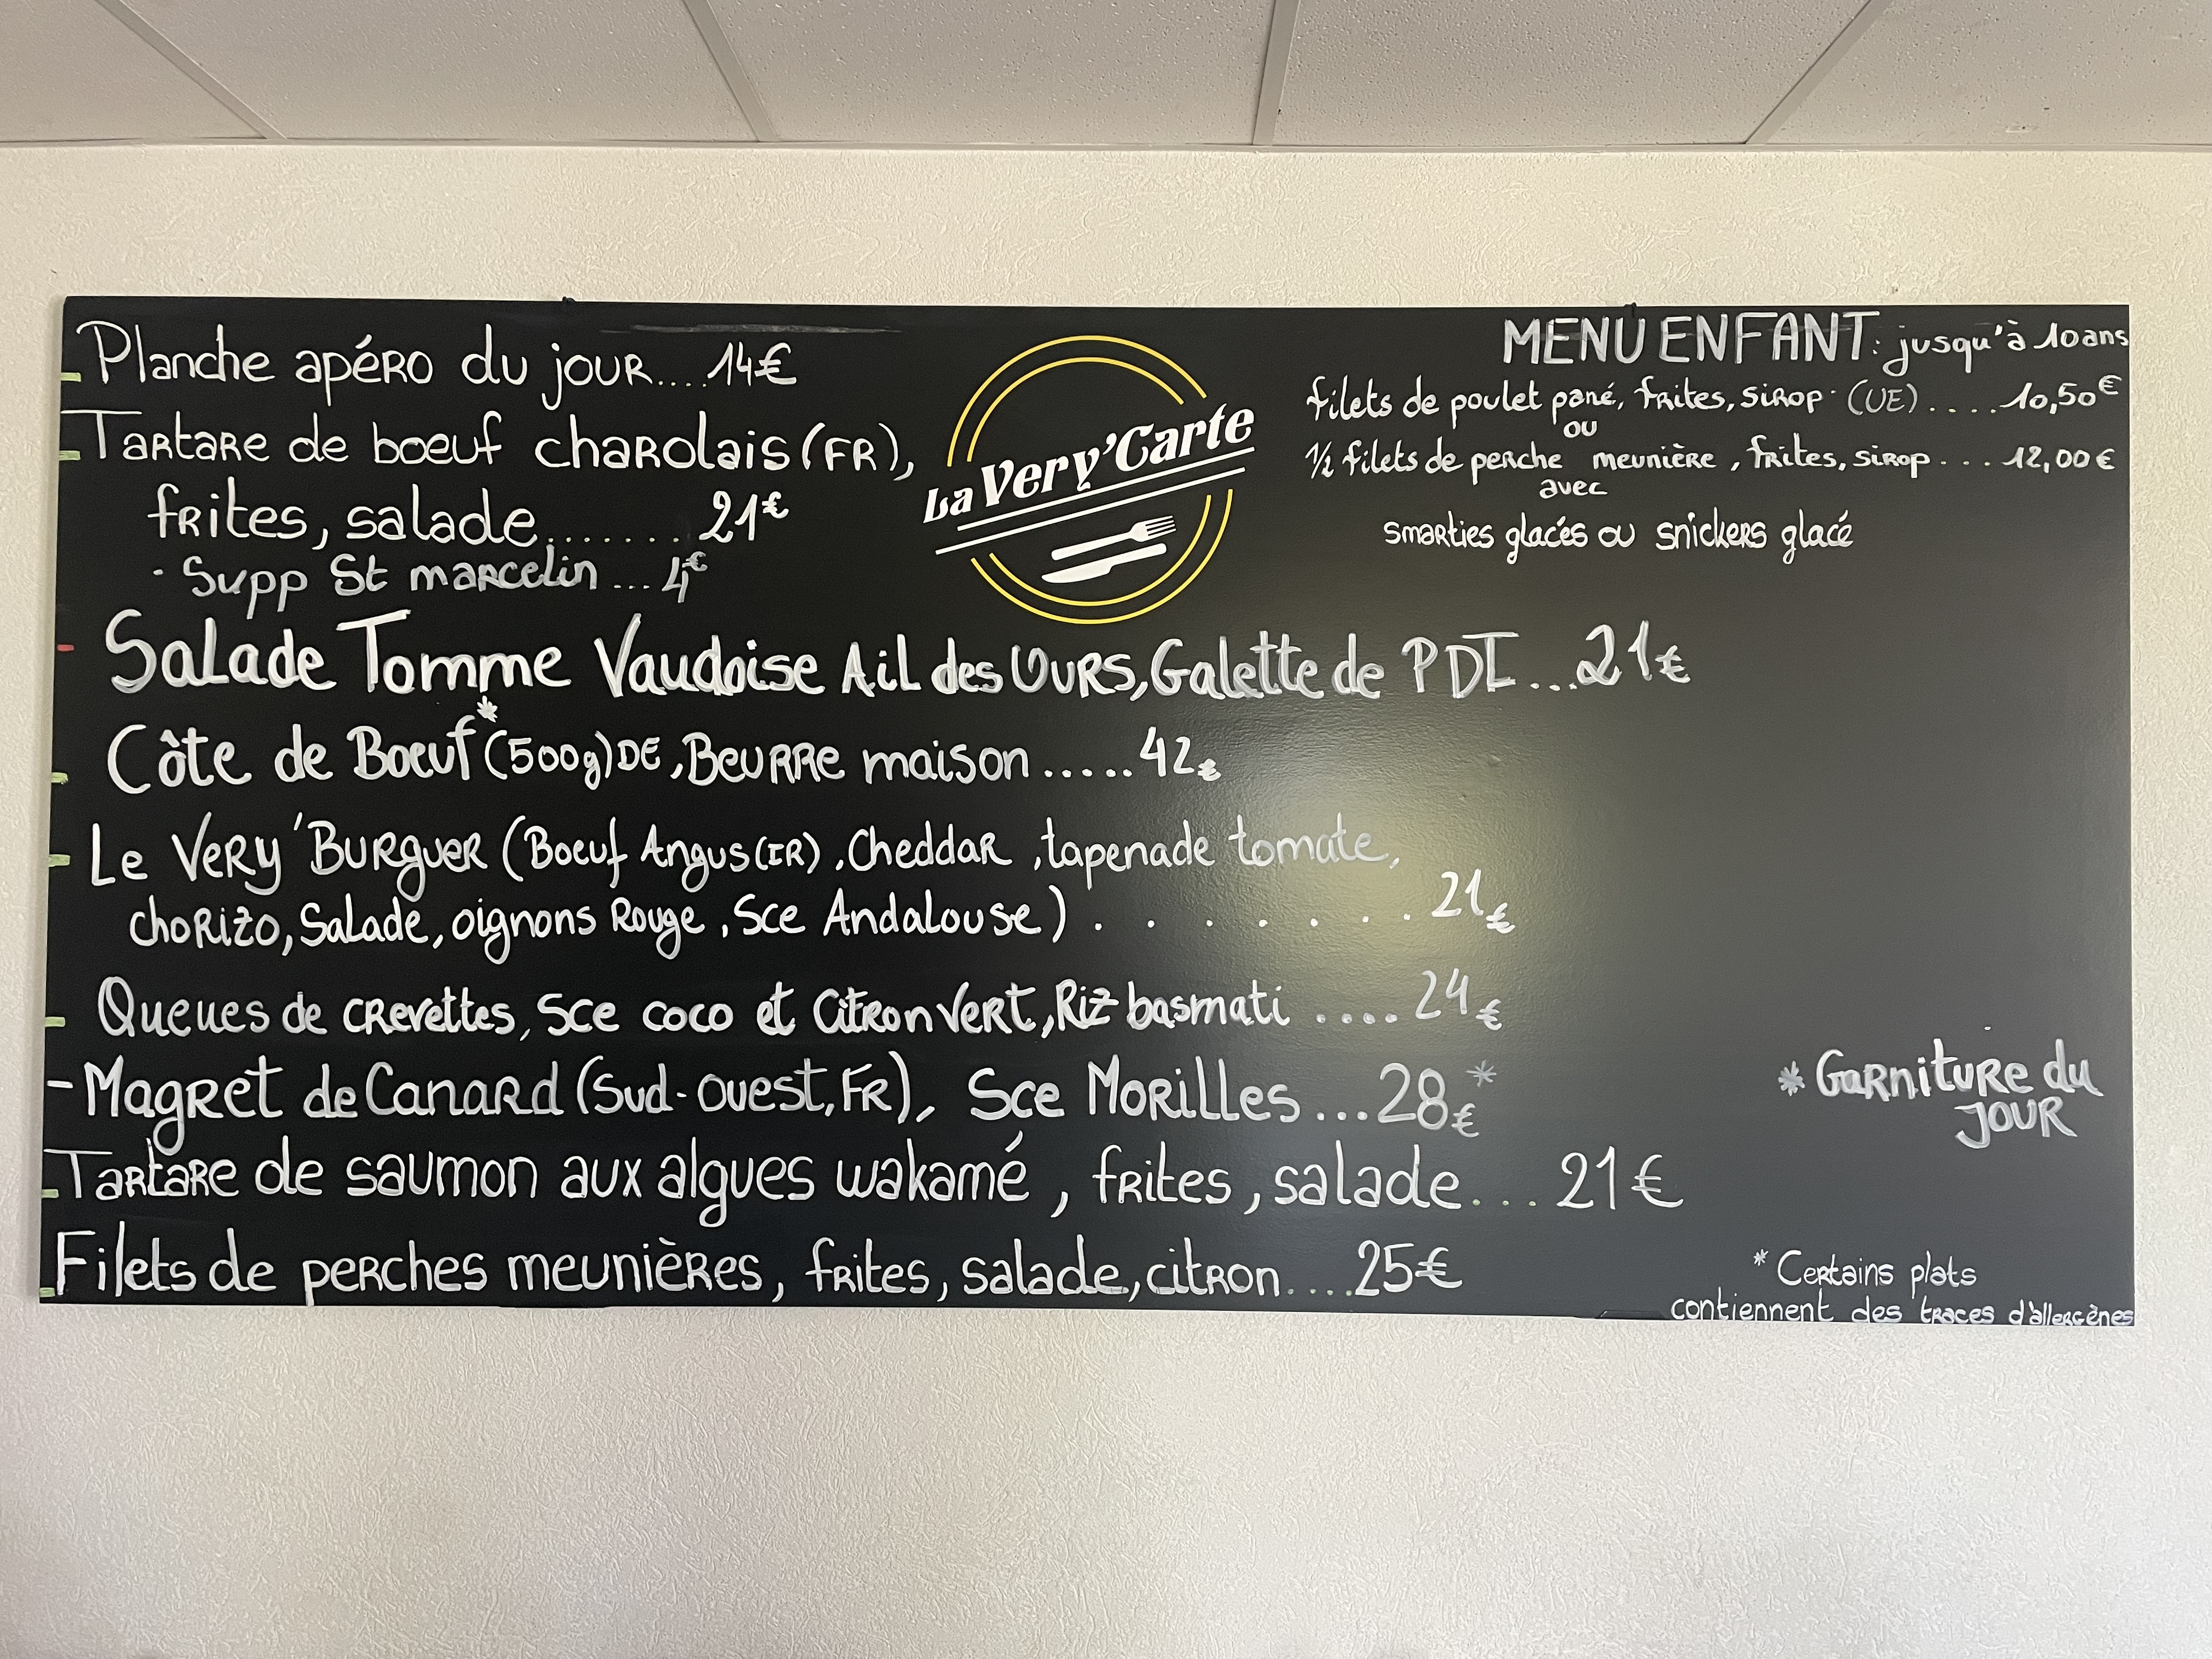 Planche apéro du jour....14€
Tartare de boeuf charolais (FR),
frites, salade....... 21€
· Supp St marcelin ... 4€
La Very'Carte
MENU ENFANT: jusqu'à 10 ans
filets de poulet pané, frites, sirop (UE) .... 10,50€
ou
1/2 filets de perche meunière, frites, sirop ... 12,00€
avec
smarties glacés ou snickers glacé
Salade Tomme Vaudoise Ail des Ours, Galette de PDT ...21€
Côte de Boeuf* (500g) DE, Beurre maison .....42€
Le Very'Burguer (Boeuf Angus (IR), Cheddar, tapenade tomate,
chorizo, Salade, oignons Rouge, Sce Andalouse) ....... 21€
Queues de crevettes, Sce coco et Citron vert, Riz basmati .... 24€
- Magret de Canard (Sud-Ouest, FR), Sce Morilles ...28€*
Tartare de saumon aux algues wakamé, frites, salade... 21€
Filets de perches meunières, frites, salade, citron....25€
* Garniture du
JOUR
* Certains plats
contiennent des traces d'allergènes